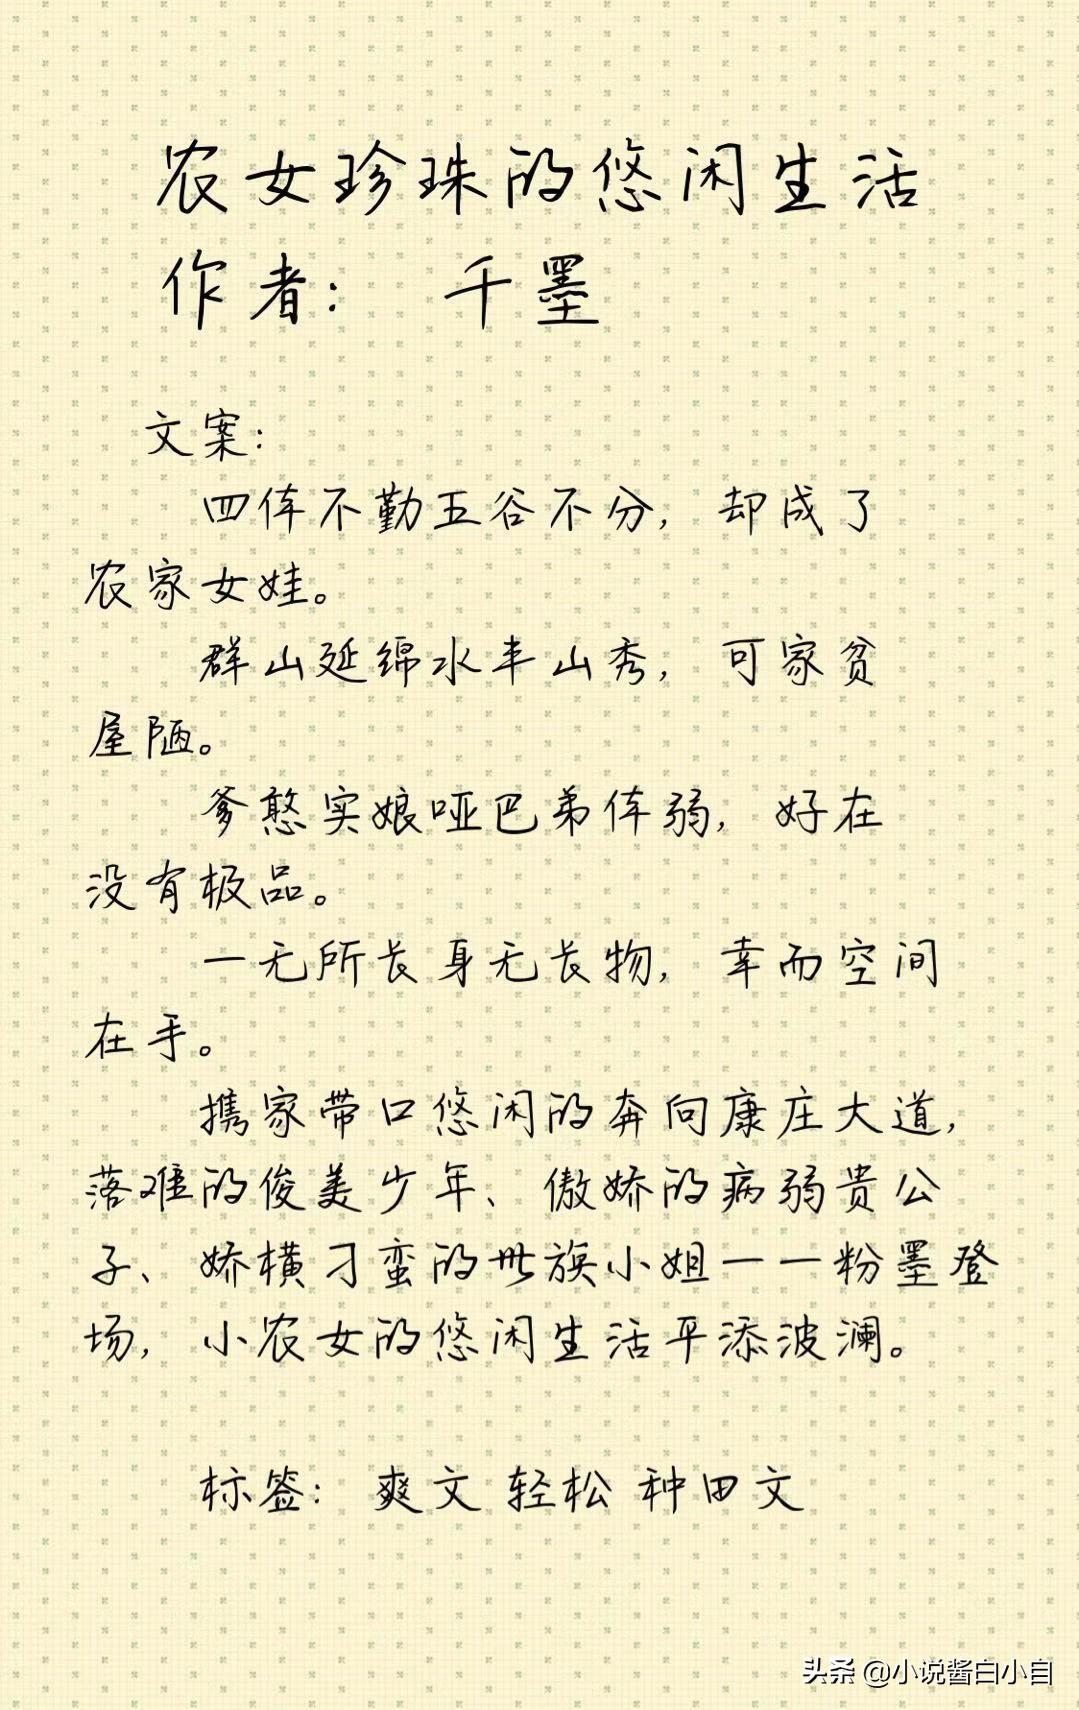 农女珍珠的悠闲生活
作者： 千墨
文案：
四体不勤五谷不分，却成了
农家女娃。
群山延绵水丰山秀，可家贫
屋陋。
爹憨实娘哑巴弟体弱，好在
没有极品。
一无所长身无长物，幸而空间
在手。
携家带口悠闲的奔向康庄大道，
落难的俊美少年、傲娇的病弱贵公
子、娇横刁蛮的世族小姐一一粉墨登
场，小农女的悠闲生活平添波澜。
标签： 爽文 轻松 种田文
头条 @小说酱白小白